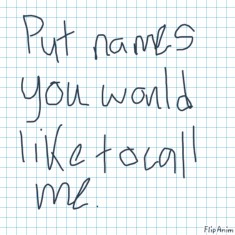 Put names
you would
like to call
me.
FlipAnim